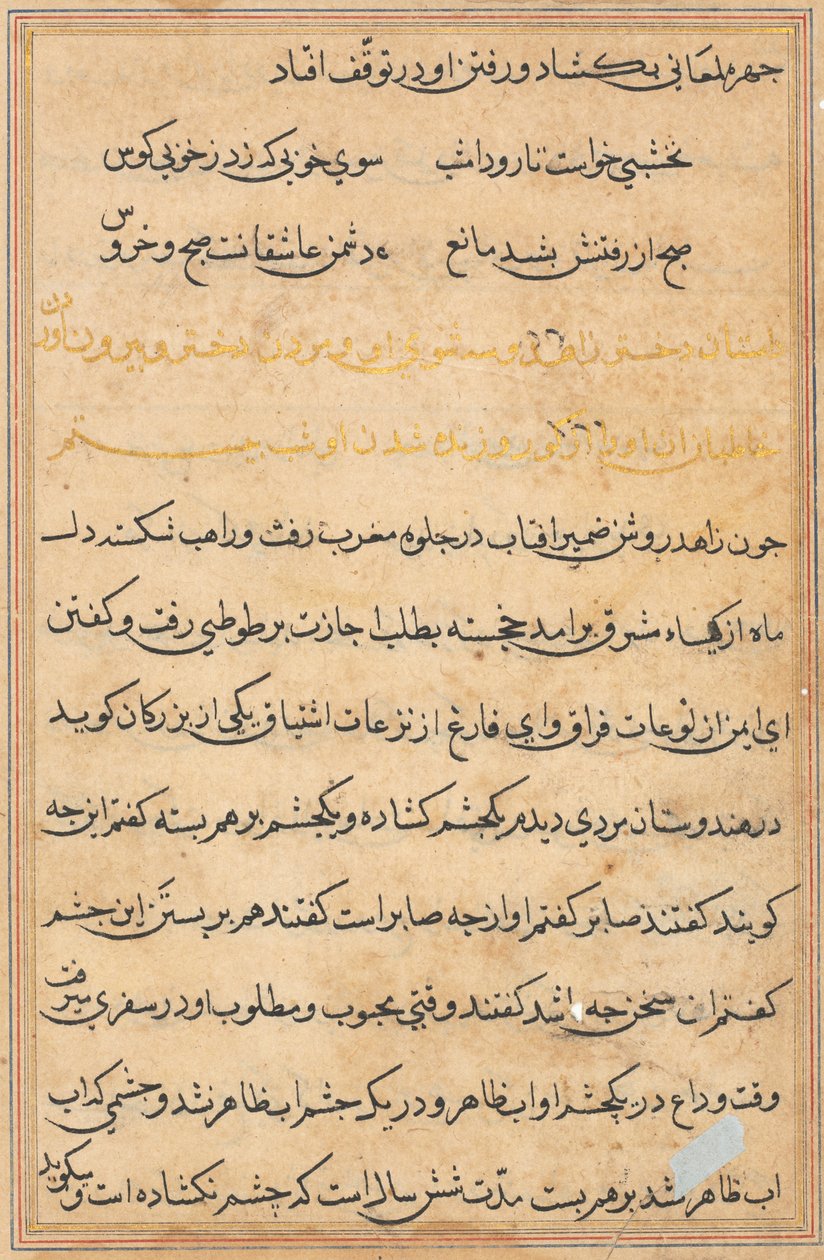 جهره ملمعاني بكشاد و رفتن او در توقّف افتاد
نخشبي خواست تا رود امشب سوي خوبي كه زد ز خوبي كوس
صبح از رفتنش بشد مانع دشمن عاشقانست صبح و خروس
داستان دختر زاهد و سه شوي او و مردن دختر و بيرون آوردن
خاطبان ان او را از كور و زنده شدن او شب بيستم
جون زاهد روشن ضمير افتاب در جلوه مغرب رفت و راهب شكسته دل
ماه از كليساء مشرق برامد خجسته بطلب اجازت بر طوطي رفت و كفتن
اي ايمن از لوعات فراق و اي فارغ از نزعات اشتياق يكي از بزركان كويد
در هندوستان مردي ديدم يكجشم كشاده و يكجشم بر هم بسته كفتم اين جه
كويند كفتند صابر كفتم او از جه صابر است كفتند هم بر بستن اين جشم
كفتم ان سخن جه باشد كفتند وقتي محبوب و مطلوب او در سفري ميرفت
وقت وداع در يكجشم او اب ظاهر و در يك جشم اب ظاهر نشد و جشمي كه اب
اب ظاهر نشد بر هم بست مدّت شش سال است كه چشم نكشاده است و ميكويد